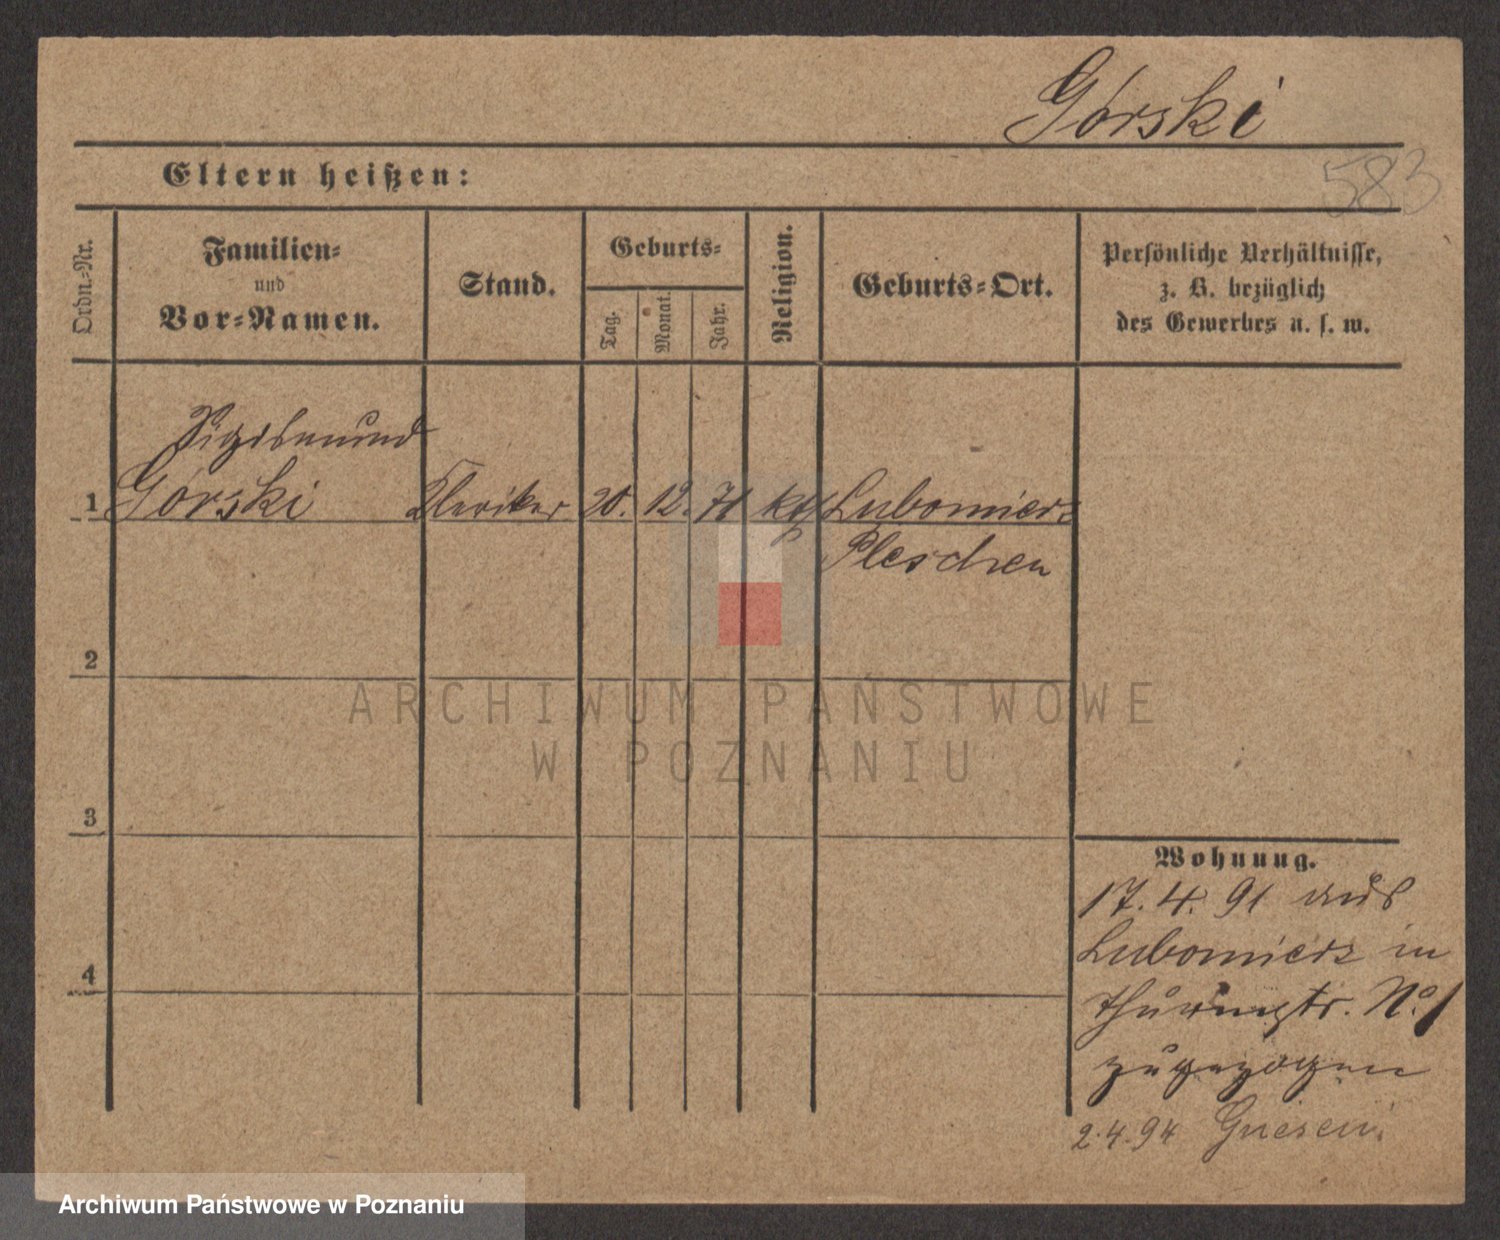 Górski
583
Eltern heißen:
Ordn.-Nr.
Familien-
und
Vor-Namen.
Stand.
Geburts-
Tag.
Monat.
Jahr.
Religion.
Geburts-Ort.
Persönliche Verhältnisse,
z. B. bezüglich
des Gewerbes u. s. w.
Sigismund
1 Górski Kleriker 20. 12. 71 kth Lubomierz
Pleschen
2
3
4
Wohnung.
17. 4. 91 aus
Lubomierz in
Thurmstr. No. 1
zugezogen
2.4.94 Gnesen
ARCHIWUM PAŃSTWOWE
W POZNANIU
Archiwum Państwowe w Poznaniu